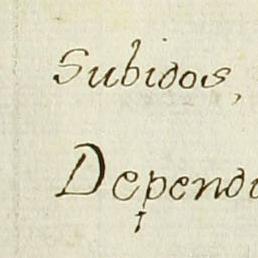 Subidos,
Depend